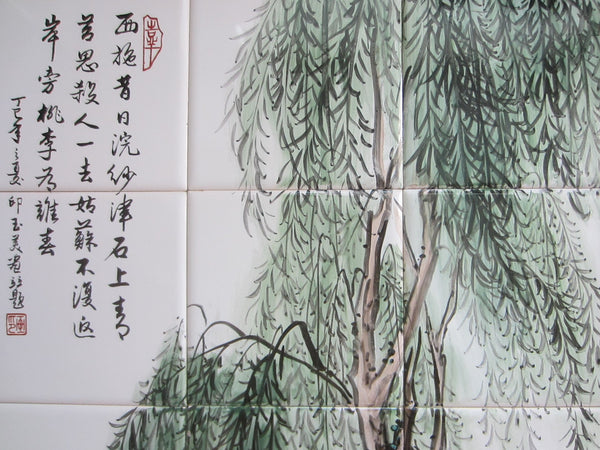 西施昔日浣紗津石上青
苔思殺人一去姑蘇不復返
岸旁桃李為誰春
丁巳年之夏 印玉美